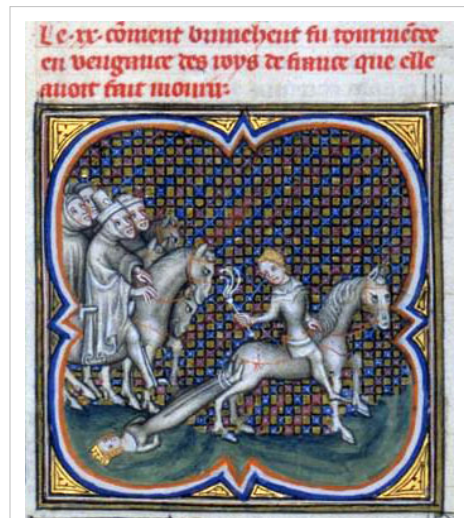 Le .xx. co͂ment bruneheut fu tourme͂tee
en vengance des roys de france que elle
auoit fait mourir.